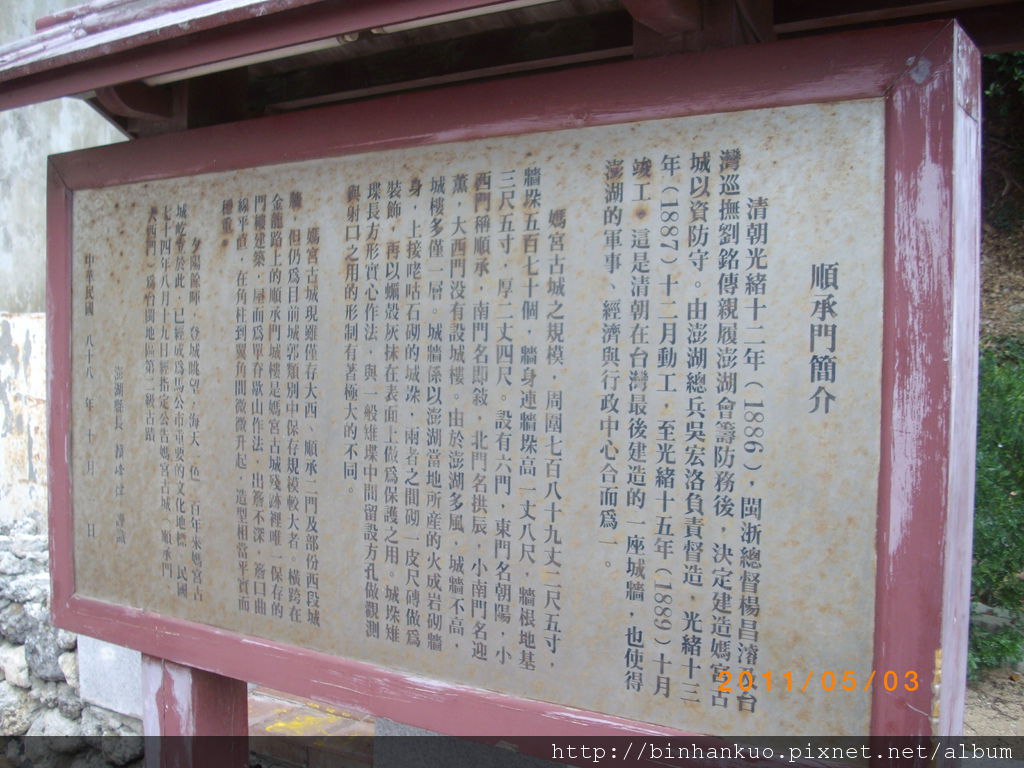 順承門簡介
清朝光緒十二年(1886)，閩浙總督楊昌濬及台
灣巡撫劉銘傳親履澎湖會籌防務後，決定建造媽宮古
城以資防守。由澎湖總兵吳宏洛負責督造，光緒十三
年(1887)十二月動工，至光緒十五年(1889)十月
竣工。這是清朝在台灣最後建造的一座城牆，也使得
澎湖的軍事、經濟與行政中心合而為一。
媽宮古城之規模，周圍七百八十九丈二尺五寸，
牆垛五百七十個，牆身連牆垛高一丈八尺，牆根地基
三尺五寸，厚二丈四尺。設有六門，東門名朝陽，小
西門稱順承，南門名即敘，北門名拱辰，小南門名迎
薰，大西門沒有設城樓。由於澎湖多風，城牆不高，
城樓多僅一層。城牆係以澎湖當地所產的火成岩砌牆
身，上接咾咕石砌的城垛，兩者之間砌一皮尺磚做為
裝飾，再以蠣殼灰抹在表面上做為保護之用。城垛雉
堞長方形實心作法，與一般雉堞中間留設方孔做觀測
與射口之用的形制有著極大的不同。
媽宮古城現雖僅存大西、順承二門及部份西段城
牆，但仍為目前城郭類別中保存規模較大者，橫跨在
金龍路上的順承門城樓是媽宮古城殘跡裡唯一保存的
門樓建築，屋面為單脊歇山作法，出簷不深，簷口曲
線平直，在角柱到翼角間微微升起，造型相當平實而
穩重。
夕陽餘暉，登城眺望，海天一色，百年來媽宮古
城屹立於此，已經成為馬公市重要的文化地標，民國
七十四年八月十九日經指定公告媽宮古城（順承門
大西門）為台閩地區第二級古蹟
澎湖縣長 賴峰偉 謹識
中華民國 八十八 年 十 月 日
2011/05/03
http://binhankuo.pixnet.net/album